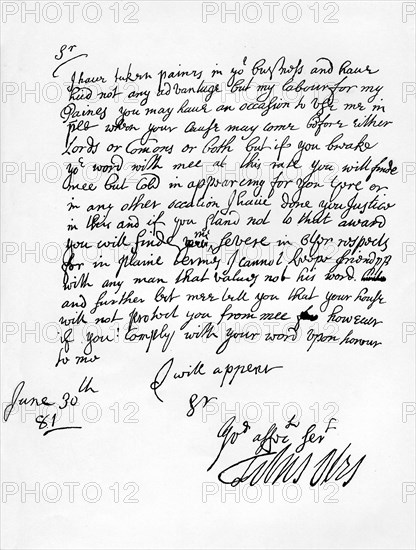 Sr
I haue taken paines in yor busness and haue
had not any advantage but my Labour for my
Paines you may haue an occasion to Vse me in
when your Cause may come before Either
Lords or Comons or both but if you breake
yor word with mee at this rate you will finde
mee but Cold in appearing for you here or
in any other occation I haue done you Justice
in this and if you stand not to that award
you will find mee severe in other respects
for in plaine termes I cannot keepe friendsp
with any man that values not his word
and further let mee tell you that your house
will not protect you from mee however
if you Comply with your word vpon honour
to me
I will appear
Sr
June 30th
81
Yor affoc te Sert